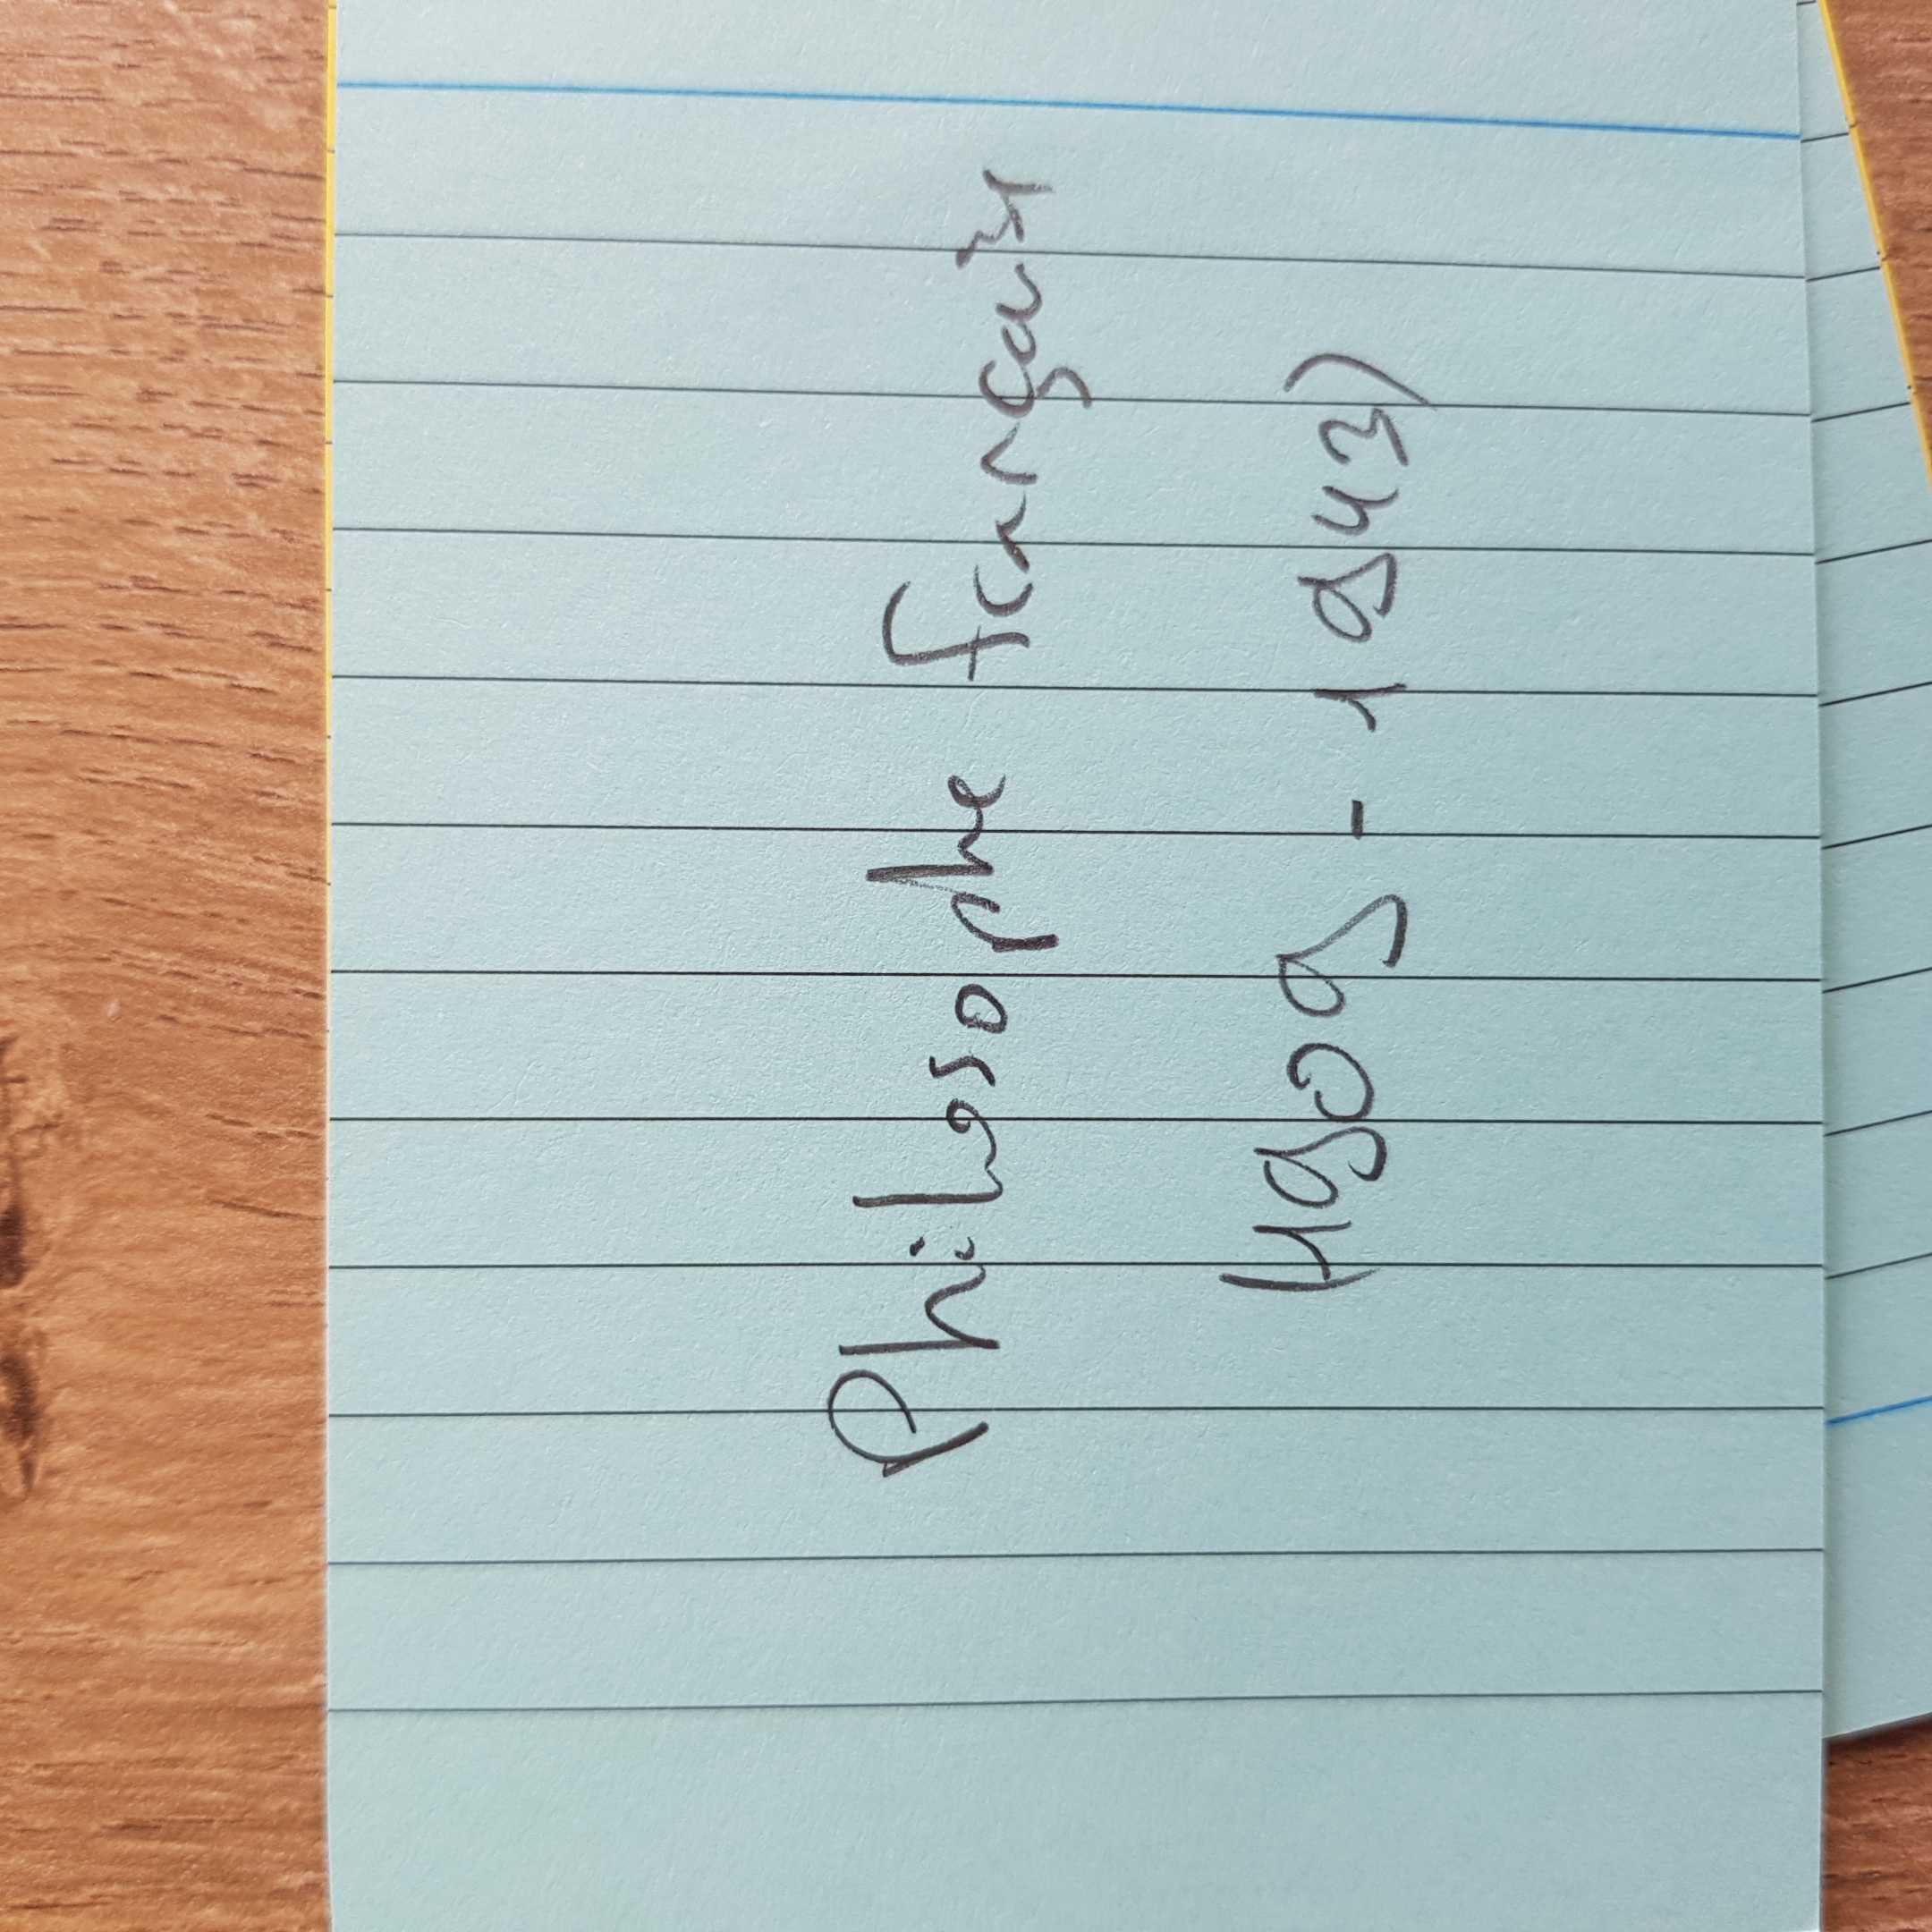 Philosophe français
(1909 - 1943)